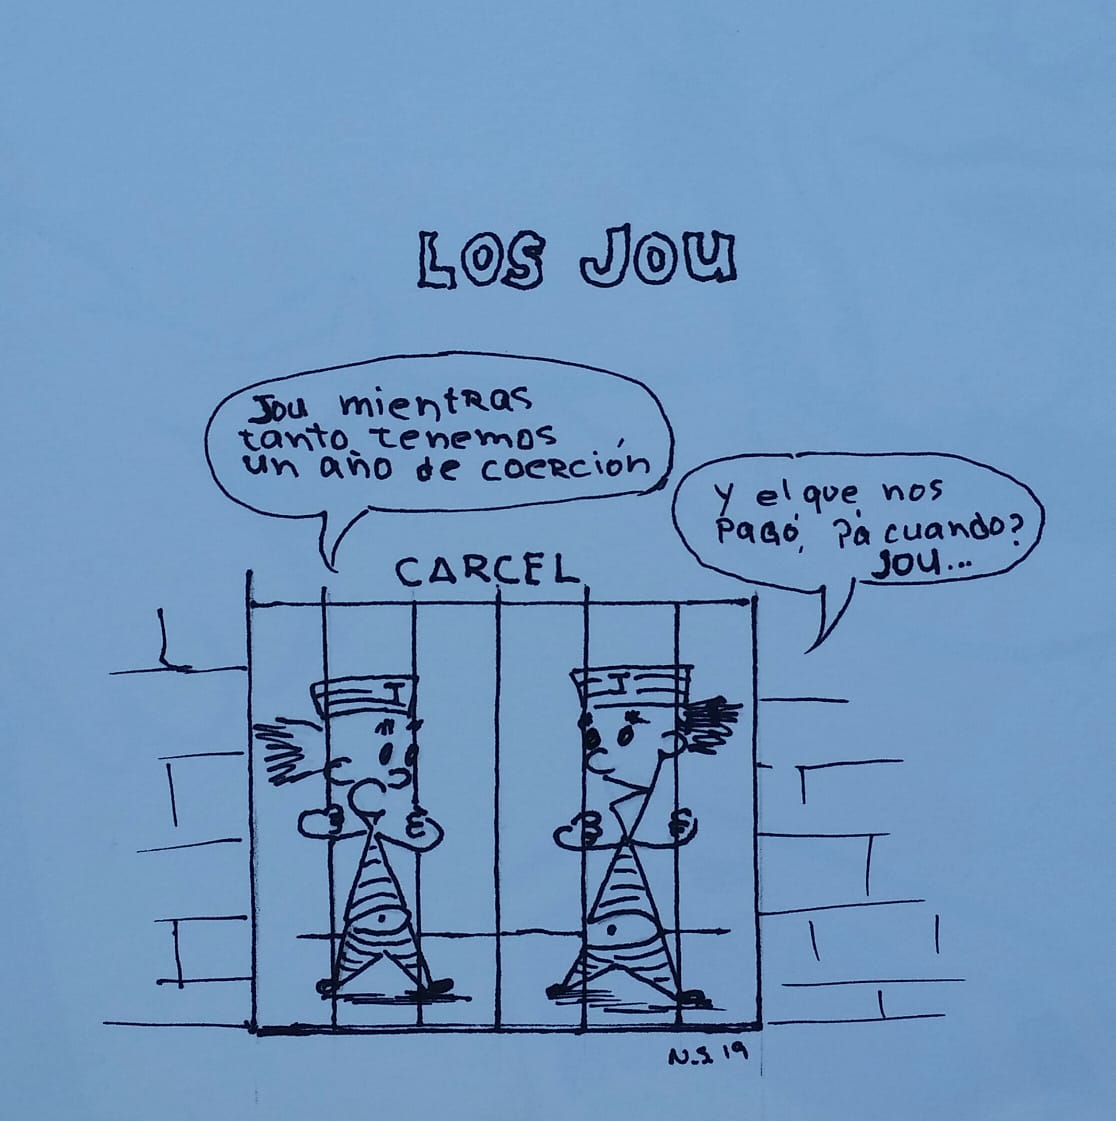 LOS JOU
Jou mientras
tanto, tenemos
un año de coerción
y el que nos
pagó, pá cuando?
Jou...
CARCEL
J
J
N.S 19